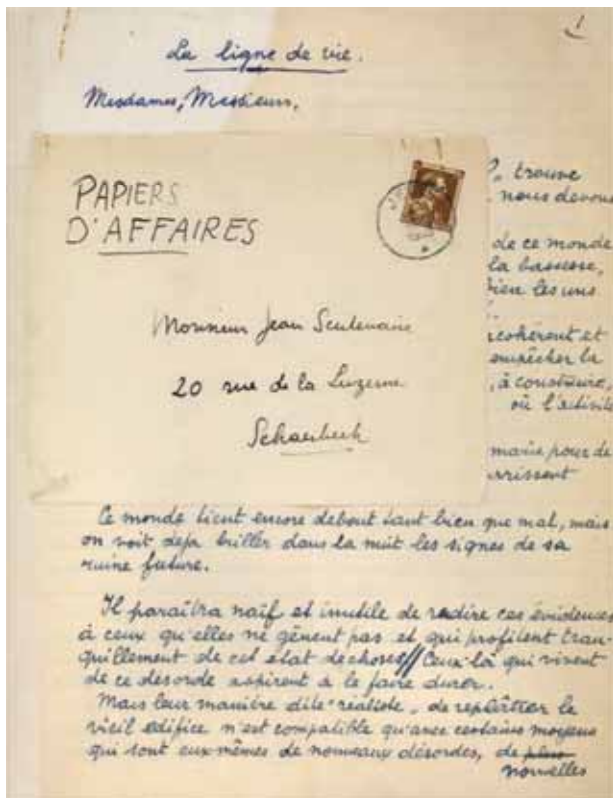 1
La ligne de vie.
Mesdames, Messieurs,
PAPIERS
D'AFFAIRES
Monsieur Jean Scutenaire
20 rue de la Luzerne
Schaerbeek
trouve
nous devons
de ce monde
la bassesse,
bien les uns
cohérent et
empêcher la
, à construire,
où l'activité
marie pour de
rrissent
Ce monde tient encore debout tant bien que mal, mais
on voit deja briller dans la nuit les signes de sa
ruine future.
Il paraîtra naïf et inutile de redire ces évidences
à ceux qu'elles ne gênent pas et qui profitent tran-
quillement de cet état de choses // Ceux-là qui vivent
de ce désordre aspirent à le faire durer.
Mais leur manière dite "réaliste", de replâtrer le
vieil édifice n'est compatible qu'avec certains moyens
qui sont eux-mêmes de nouveaux désordres, de
nouvelles